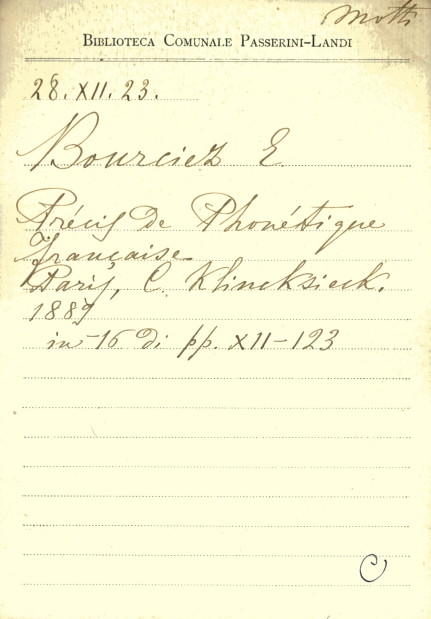 Motti
BIBLIOTECA COMUNALE PASSERINI-LANDI
28. XII. 23.
Bourciez E.
Précis de Phonétique
française
Paris, C. Klincksieck.
1889
in-16 di pp. XII-123
C